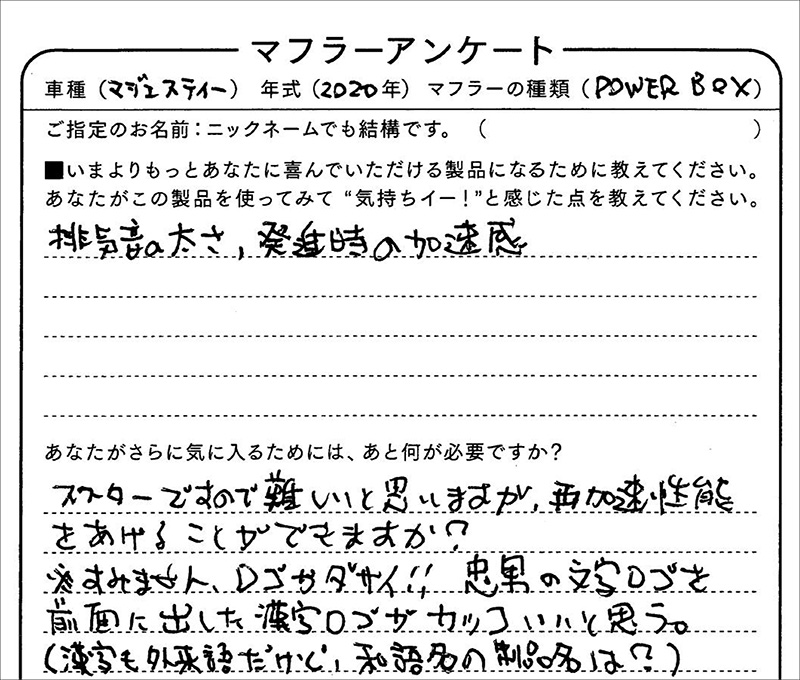 マフラーアンケート
車種（マジェスティー） 年式（2020年） マフラーの種類（POWER BOX）
ご指定のお名前：ニックネームでも結構です。（　　　）
■いまよりもっとあなたに喜んでいただける製品になるために教えてください。
あなたがこの製品を使ってみて“気持ちイー！”と感じた点を教えてください。
排気音の太さ，発進時の加速感
あなたがさらに気に入るためには、あと何が必要ですか？
スクーターですので難しいと思いますが，再加速性能
をあげることができますか？
※すみません、ロゴがダサイ!! 忠男の文字ロゴを
前面に出した漢字ロゴがカッコいいと思う。
（漢字も外来語だけど，和語名の製品名は？）